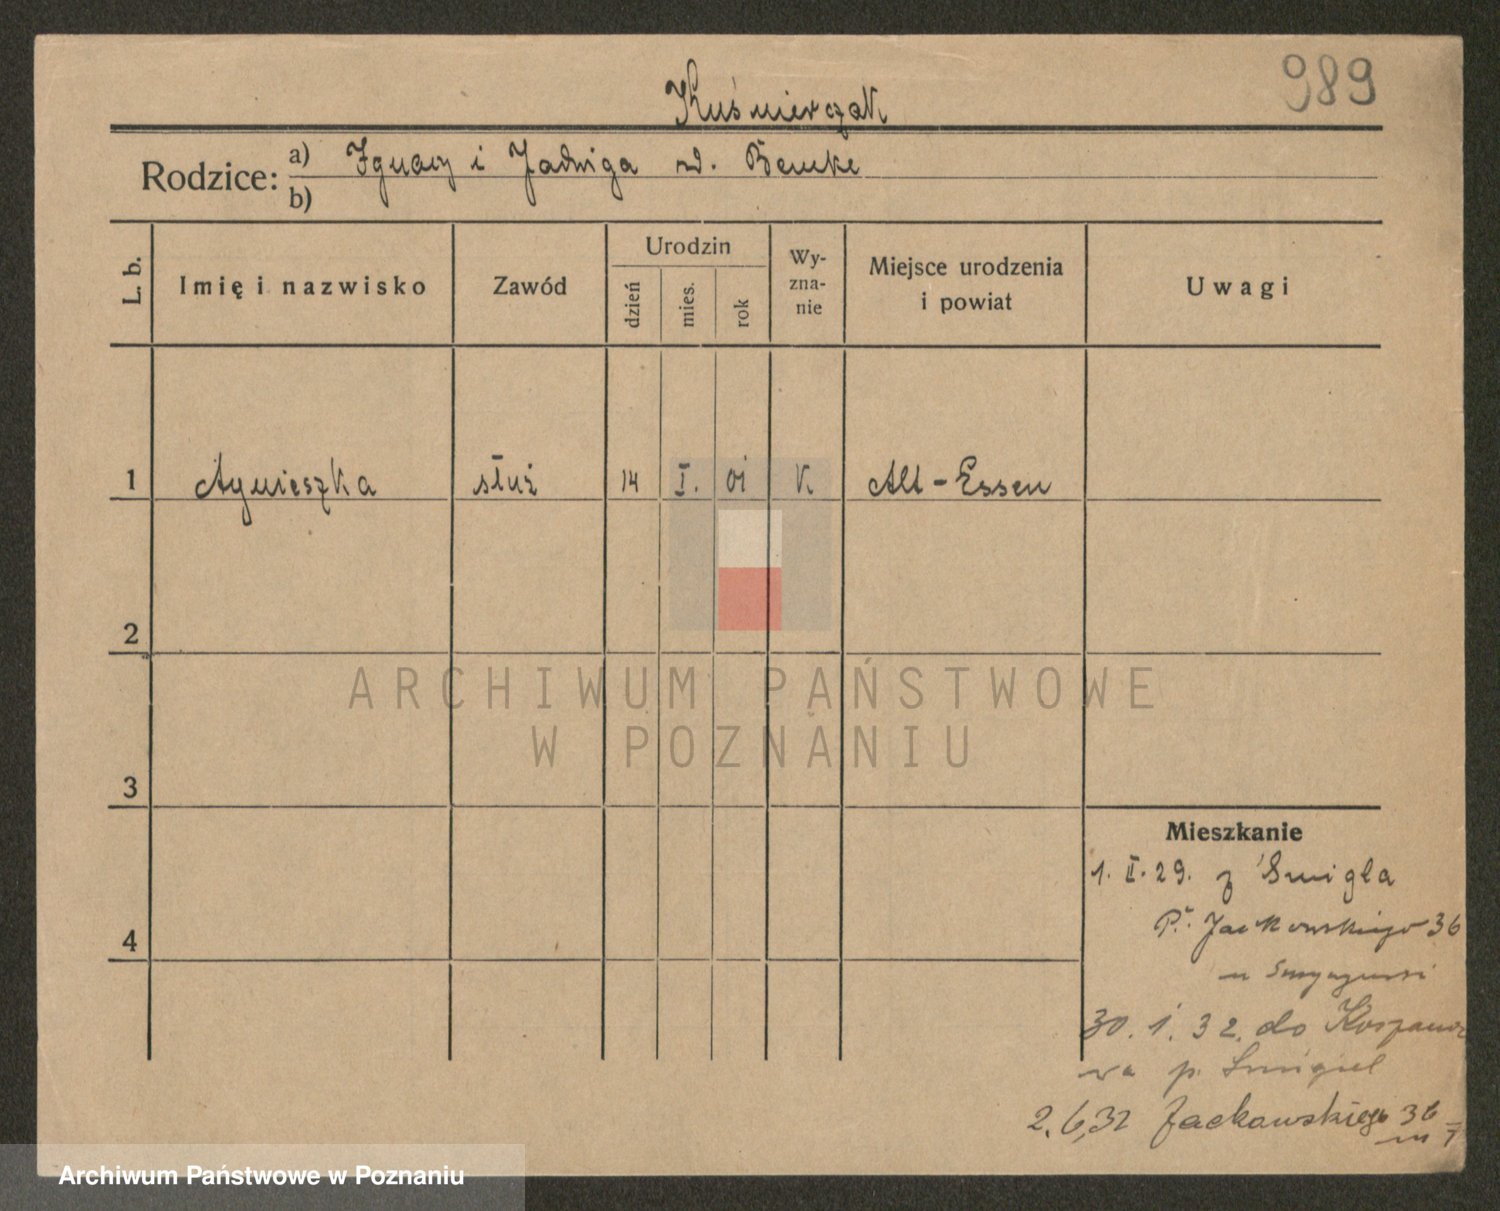 989
Kuśmierczak
Rodzice: a) Ignacy i Jadwiga zd. Bemke
b)
L. b. Imię i nazwisko Zawód Urodzin dzień mies. rok Wyznanie Miejsce urodzenia i powiat Uwagi
1 Agnieszka służ 14 I. 01 K Alt-Essen
2
ARCHIWUM PAŃSTWOWE
W POZNANIU
3
Mieszkanie
1. II. 29. z Śmigla
Jackowskiego 36
4
u
30. 1. 32. do
wa p. Śmigiel
2.6,32 Jackowskiego 36
m 7
Archiwum Państwowe w Poznaniu